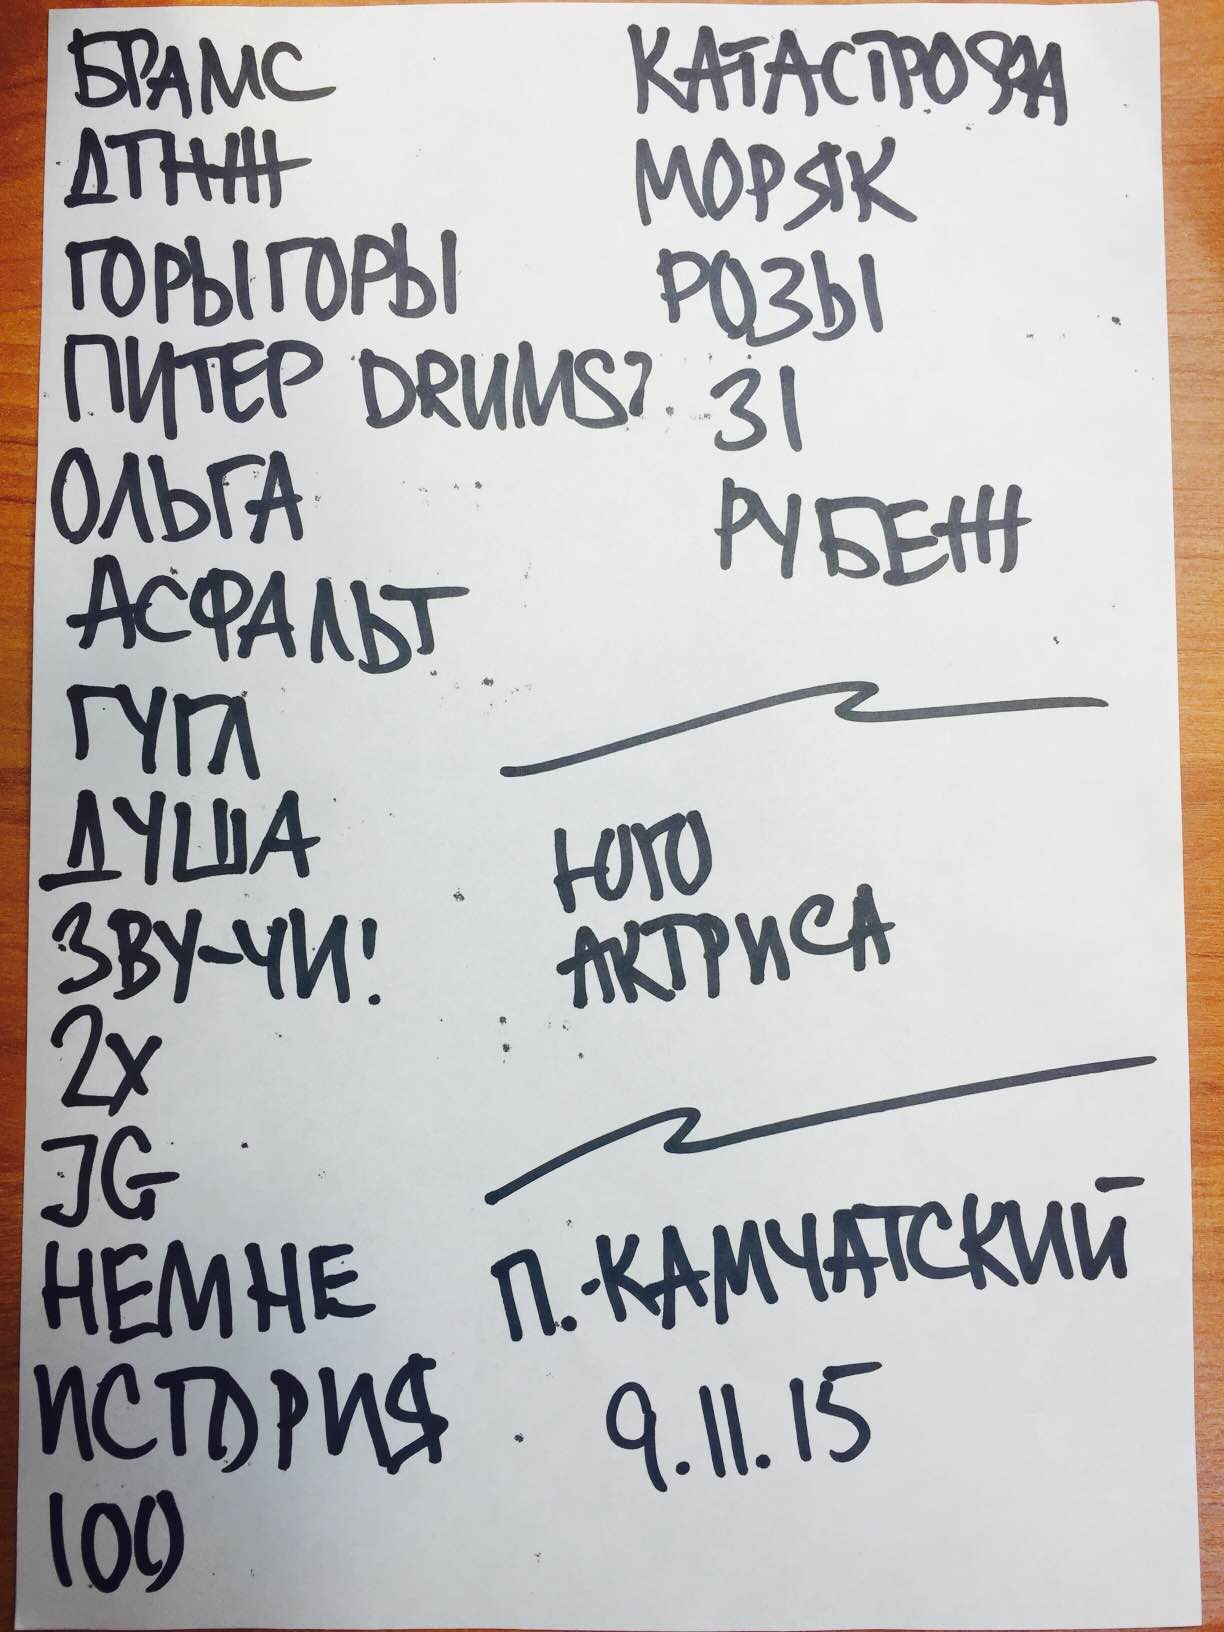 БРАМС
ДТНЖ
ГОРЫГОРЫ
ПИТЕР DRUMS?
ОЛЬГА
АСФАЛЬТ
ГУГЛ
ДУША
ЗВУ-ЧИ!
2X
JG
НЕМНЕ
ИСТОРИЯ
100
КАТАСТРОФА
МОРЯК
РОЗЫ
31
РУБЕЖ
ЮГО
АКТРИСА
П.-КАМЧАТСКИЙ
9.11.15